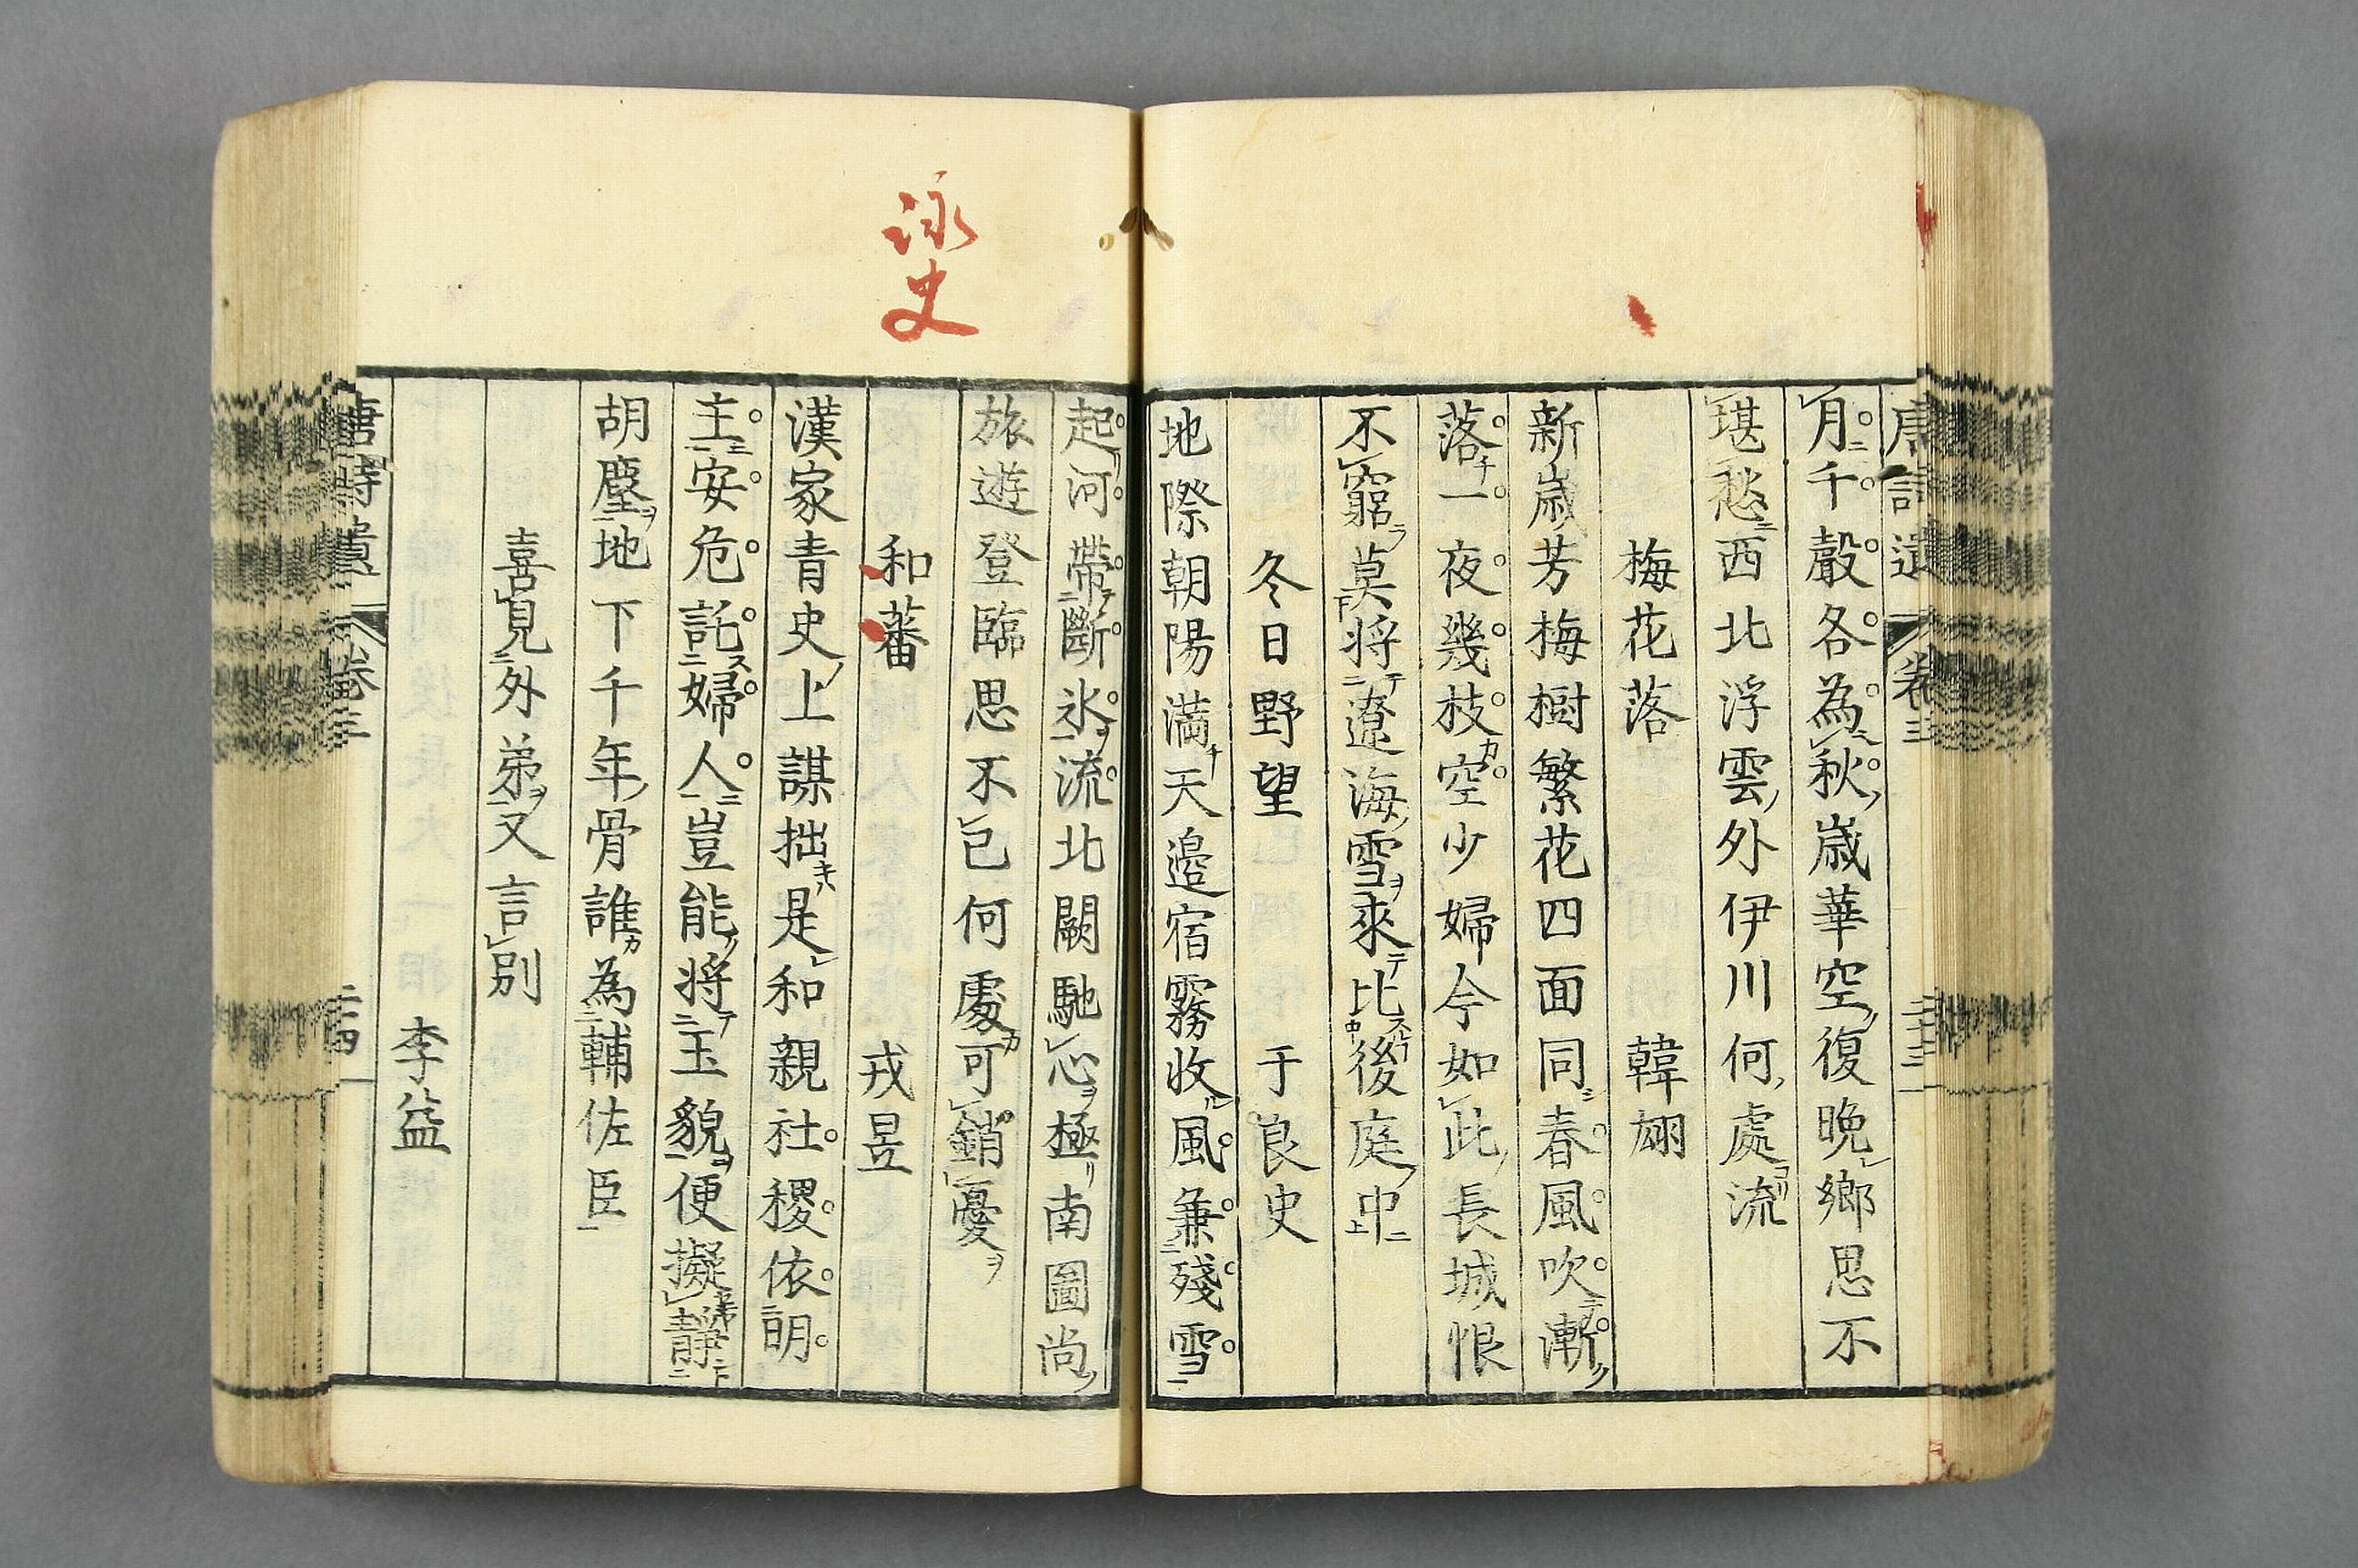 月千聲各為秋歲華空復晚鄉思不
堪愁西北浮雲外伊川何處流
梅花落 韓翃
新歲芳梅樹繁花四面同春風吹漸
落一夜幾枝空少婦今如此長城恨
不窮莫將遼海雪來比後庭中
冬日野望 于良史
地際朝陽滿天邊宿霧收風兼殘雪
起河帶斷氷流北闕馳心極南圖尚
旅遊登臨思不已何處可銷憂
詠史
和蕃 戎昱
漢家青史上謀拙是和親社稷依明
主安危託婦人豈能將玉貌便擬靜
胡塵地下千年骨誰為輔佐臣
喜見外弟又言別
李益
卷三
二十四